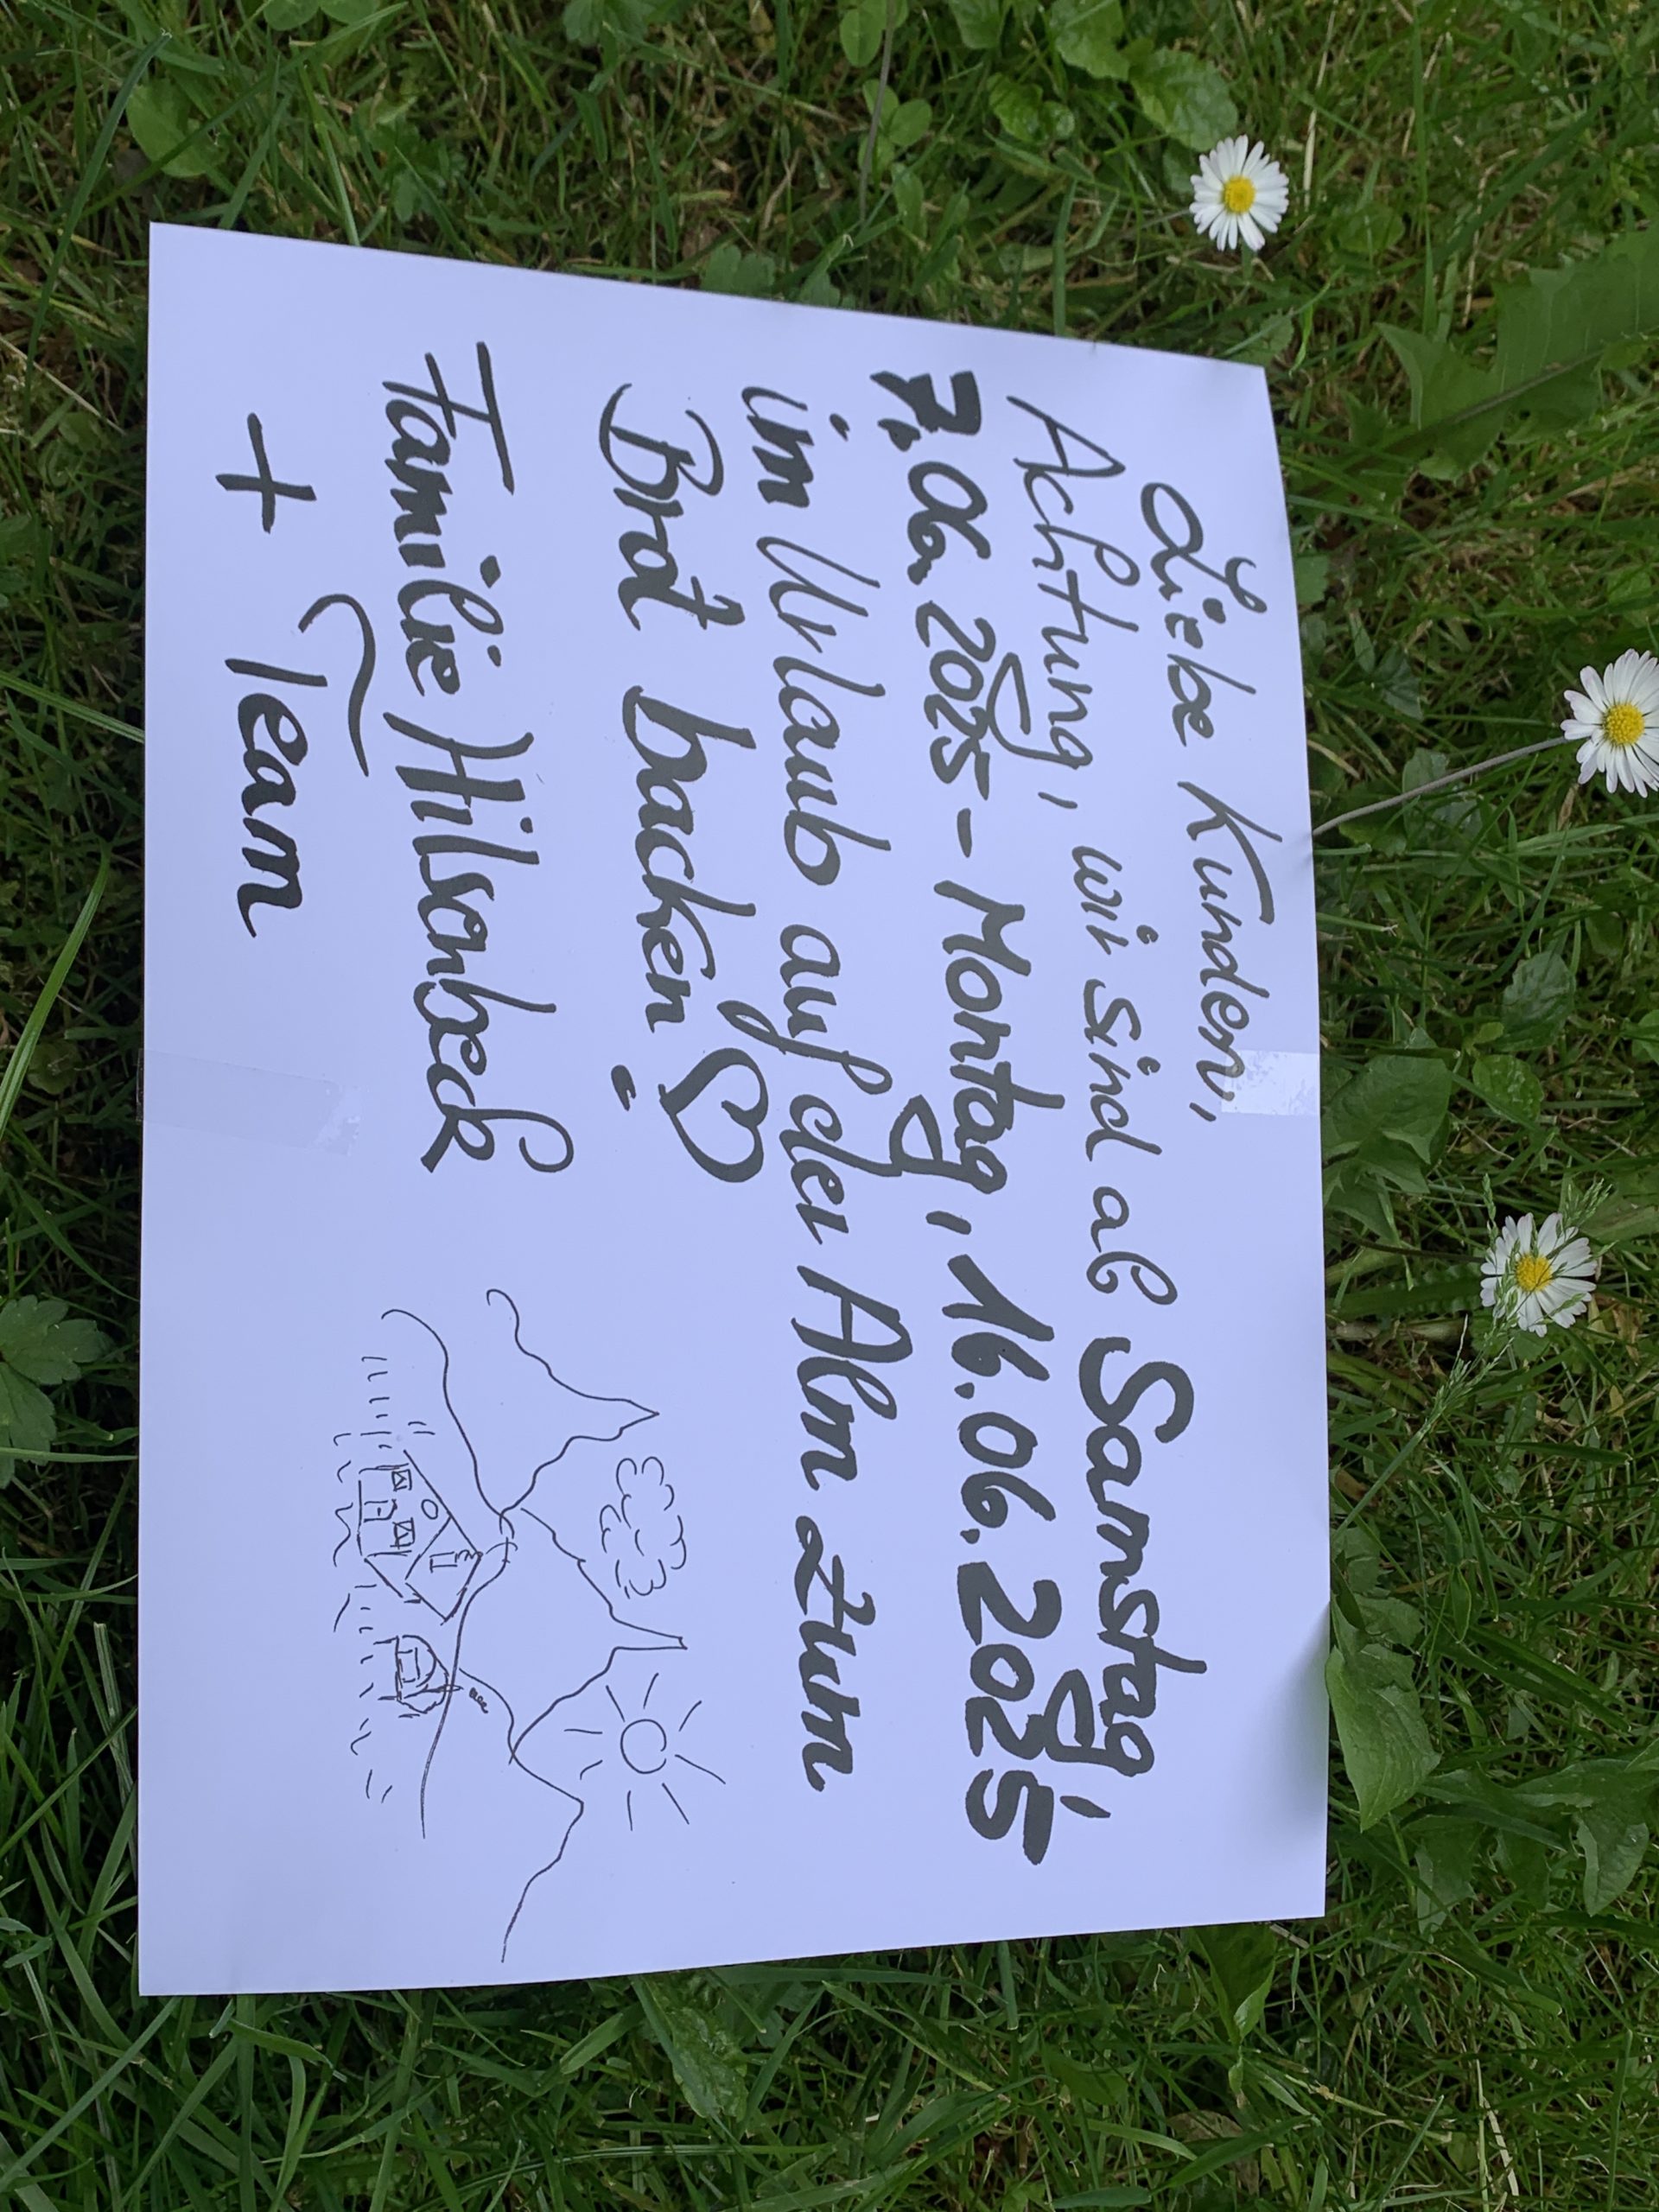 Liebe Kunden,
Achtung, wir sind ab Samstag,
7.06.2025 - Montag, 16.06.2025
im Urlaub auf der Alm zum
Brot backen ♡!
Familie Hilsenbeck
+ Team